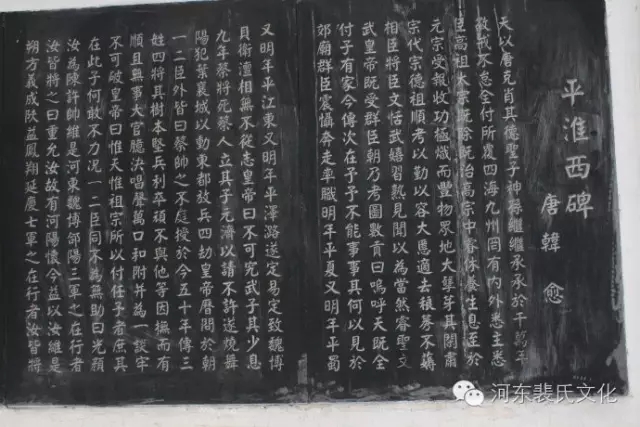 平淮西碑
唐 韓愈
天以唐克肖其德聖子神孫繼繼承承於千萬年
敬戒不怠全付所覆四海九州罔有內外悉主悉
臣高祖太宗既除既治高宗中睿休養生息至於
元宗受報收功極熾而豐物眾地大孽芽其間肅
宗代宗德祖順考以勤以容大慝適去稂莠不薅
相臣將臣文恬武嬉習熟見聞以為當然睿聖文
武皇帝既受群臣朝乃考圖數貢曰嗚呼天既全
付予有家今傳次在予予不能事事其何以見於
郊廟群臣震懾奔走率職明年平夏又明年平蜀
又明年平江東又明年平澤潞遂定易定致魏博
貝衛澶相無不從志皇帝曰不可究武予其少息
九年蔡將死蔡人立其子元濟以請不許遂燒舞
陽犯葉襄城以動東都放兵四劫皇帝曆問於朝
一二臣外皆曰蔡帥之不庭授於今五十年傳三
姓四將其樹本堅兵利卒頑不與他等因撫而有
順且無事大官臆決唱聲萬口和附并為一談牢
不可破皇帝曰惟天惟祖宗所以付任予者庶其
在此予何敢不力況一二臣同不為無助曰光顏
汝為陳許帥維是河東魏博郃陽三軍之在行者
汝皆將之曰重允汝故有河陽懷今益以汝維是
朔方義成陝益鳳翔延慶七軍之在行者汝皆將
河东裴氏文化